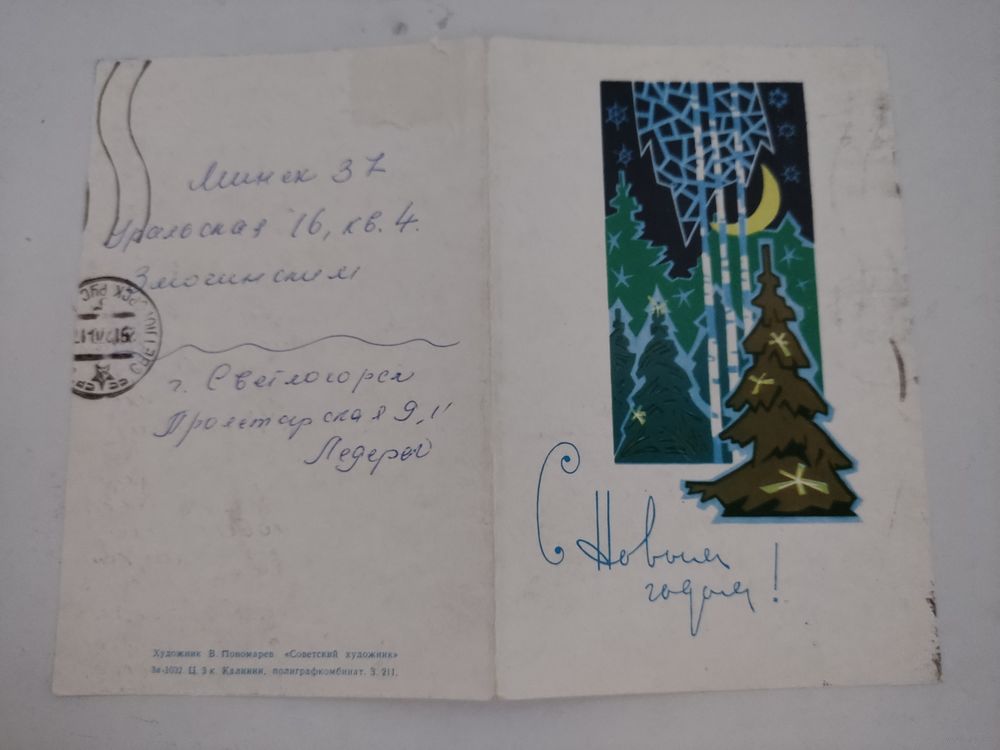 Минск 37
Уральская 16, кв. 4.
Змогинским
г. Светлогорск
Пролетарская 9, 11
Ледеры
Художник В. Пономарев «Советский художник»
Зе-1692 Ц. 3 к. Калинин, полиграфкомбинат. З. 211.
С Новым
годом!